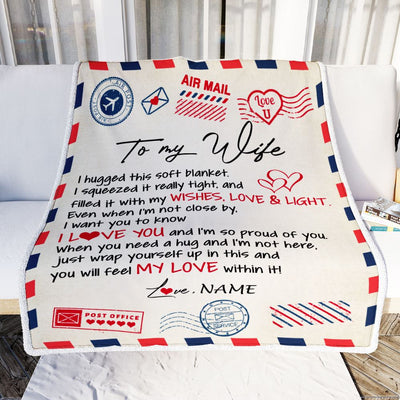 AIR MAIL
Love
U
To my Wife
I hugged this soft blanket.
I squeezed it really tight, and
filled it with my WISHES, LOVE & LIGHT.
Even when I'm not close by.
I want you to know
I L❤VE YOU and I'm so proud of you.
When you need a hug and I'm not here,
just wrap yourself up in this and
you will feel MY LOVE within it!
Love, NAME
POST OFFICE
POSTAL
SERVICE